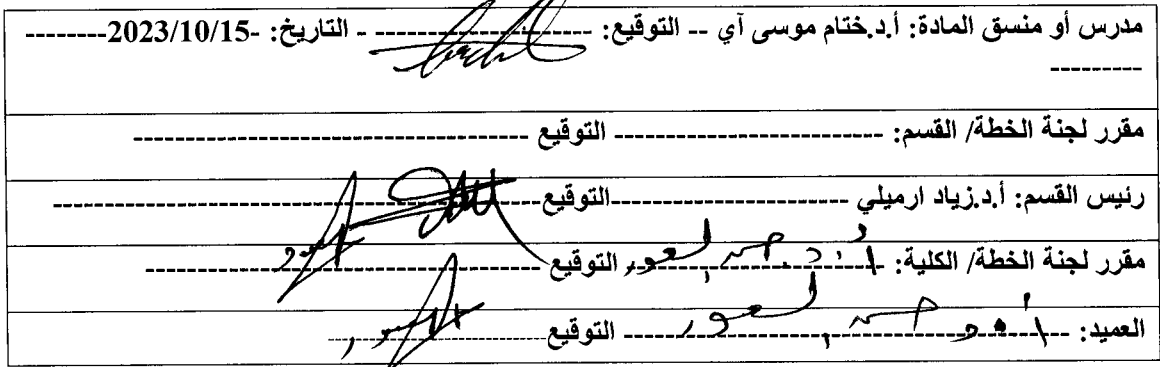 مدرس أو منسق المادة: أ.د.ختام موسى آي -- التوقيع: -------------------- - التاريخ: -2023/10/15--------
---------
مقرر لجنة الخطة/ القسم: ------------------------- التوقيع ---------------------------------------
رئيس القسم: أ.د.زياد ارميلي -----------------------التوقيع------------------------------------------------
مقرر لجنة الخطة/ الكلية: ------------------------- التوقيع ------------------------------------
العميد: ------------------------------------------ التوقيع